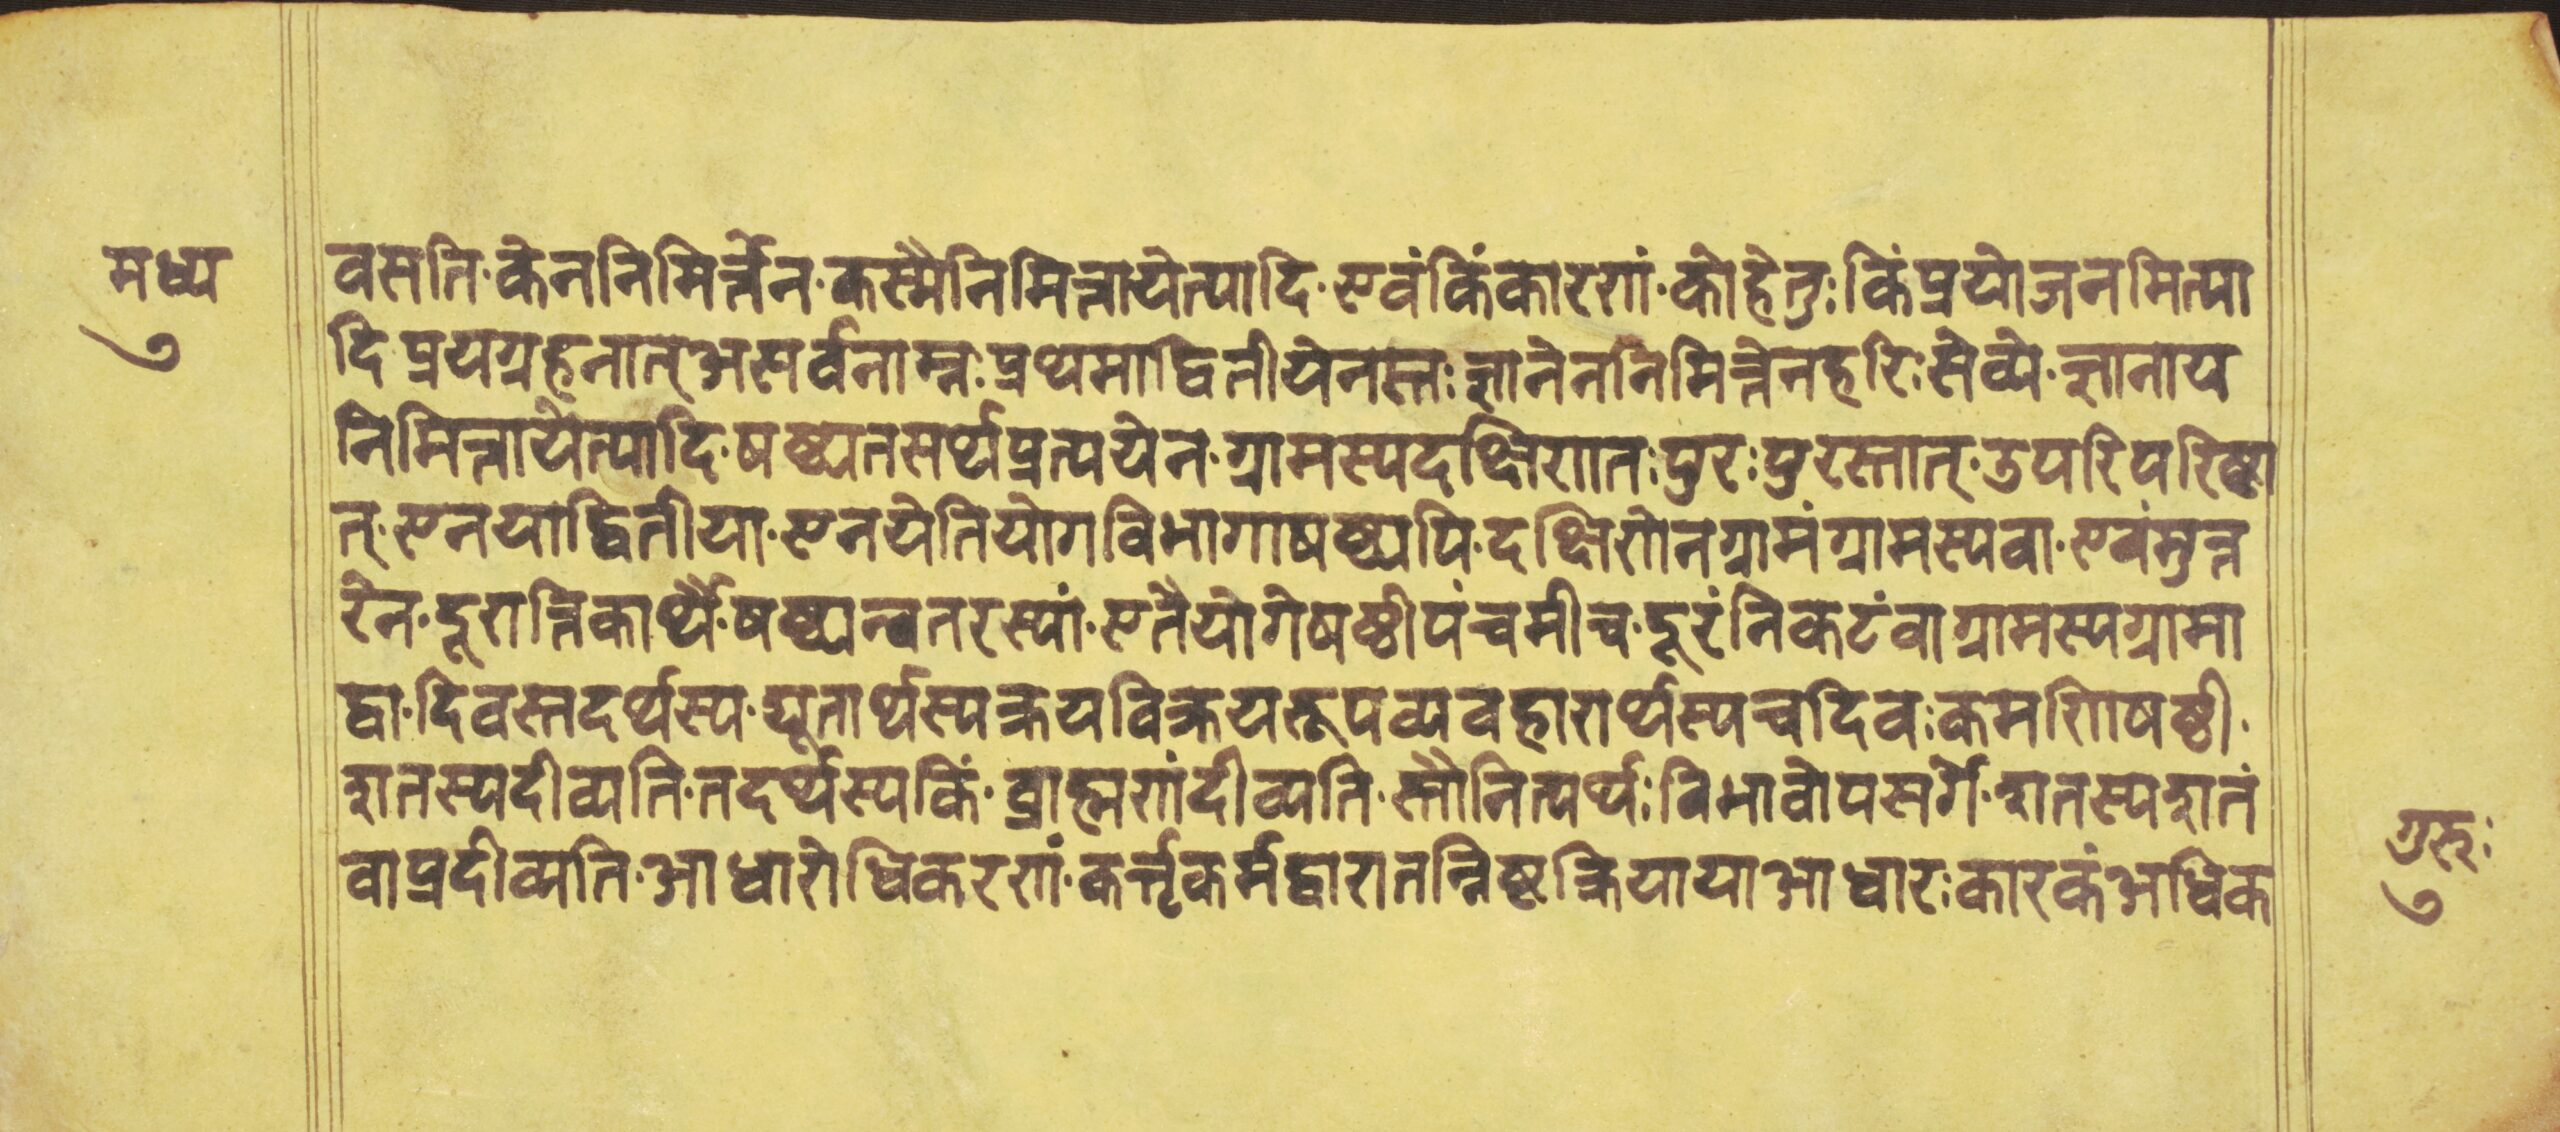 मध्य
७
वसति·केननिमिर्त्तेन·कस्मैनिमित्तायेत्यादि·एवंकिंकारणं·कोहेतुःकिंप्रयोजनमित्या
दिप्रयग्रहनात्असर्वनाम्नःप्रथमाद्वितीयेनस्तःज्ञानेननिमित्तेनहरिःसेव्ये·ज्ञानाय
निमित्तायेत्यादि·षष्ठ्यतसर्थप्रत्ययेन·ग्रामस्यदक्षिणातःपुरःपुरस्तात्·उपरिपरिष्ठा
त्·एनयाद्वितीया·एनयेतियोगविभागाषष्ठ्यपि·दक्षिणेनग्रामंग्रामस्यवा·एवंमुत्त
रेन·दूरान्तिकार्थैः·षष्ठ्यन्वतरस्यां·एतैयोगेषष्ठीपंचमीच·दूरंनिकटंवाग्रामस्यग्रामा
द्वा·दिवस्तदर्थस्य·द्यूतार्थस्यक्रयविक्रयरूपव्यवहारार्थस्यचदिवःकमणिषष्ठी·
शतस्यदीव्यति·तदर्थस्यकिं·ब्राह्मणंदीव्यति·स्तौतित्यर्थःविभाषोपसर्गे·शतस्यशतं
वाप्रदीव्यति·आधारोधिकरणं·कर्त्तृकर्मद्वारातन्निष्टक्रियायाआधारःकारकंअधिक
गुरुः
७